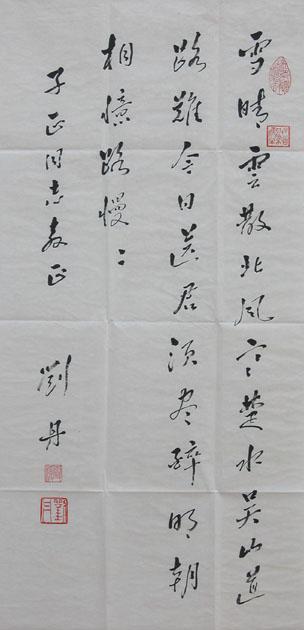 雪晴雲散北风寒楚水吴山道
路難今日送君须尽醉明朝
相憶路漫漫
子正同志教正
劉丹
劉丹